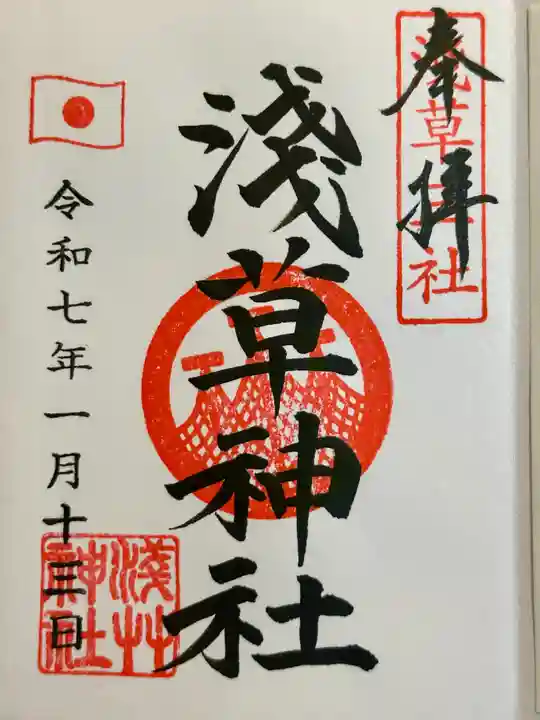 奉拝
浅草三社
淺草神社
令和七年一月十三日
淺艸神社